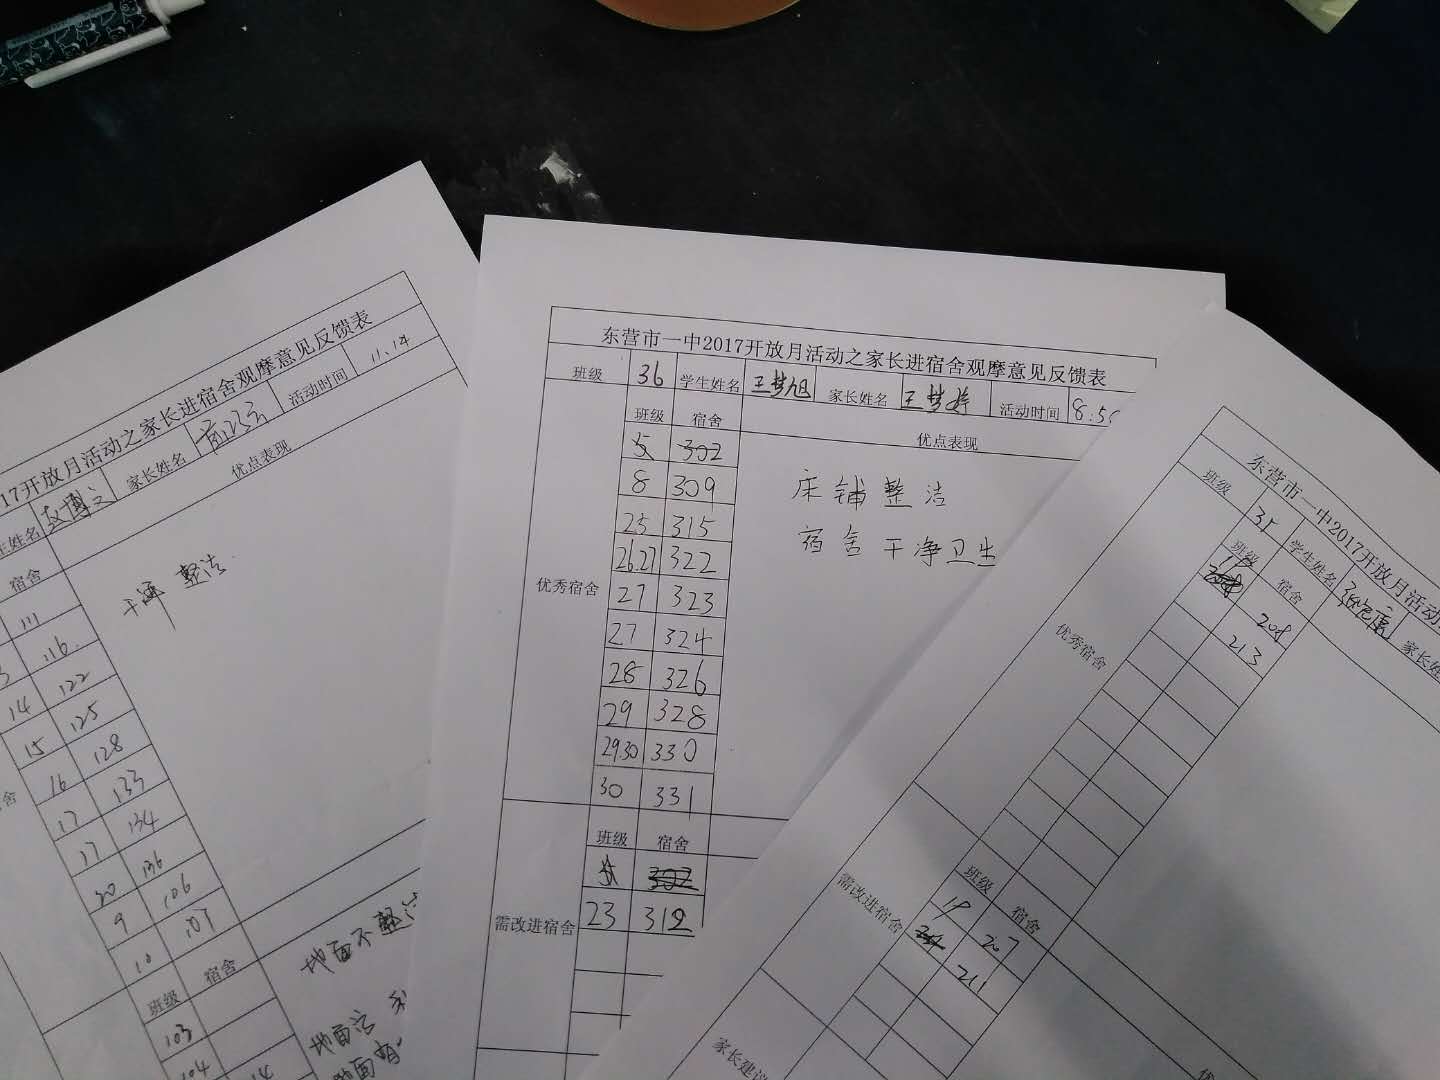 17开放月活动之家长进宿舍观摩意见反馈表
生姓名 赵博文 家长姓名 活动时间 11.14
宿舍 优点表现
111 干净 整洁
116
14 122
15 125
16 128
17 133
17 134
20 136
9 106
10 107
班级 宿舍
103 地面不整洁
104 地面污
东营市一中2017开放月活动之家长进宿舍观摩意见反馈表
班级 36 学生姓名 王梦旭 家长姓名 王梦婷 活动时间 8:50
优秀宿舍
班级 宿舍 优点表现
5 302
8 309 床铺整洁
25 315 宿舍干净卫生
26.27 322
27 323
27 324
28 326
29 328
29.30 330
30 331
需改进宿舍
班级 宿舍
5 302
23 312
东营市一中2017开放月活动
班级 35 学生姓名 家长姓
优秀宿舍
班级 宿舍
19 208
213
需改进宿舍
班级 宿舍
19 207
211
家长建议